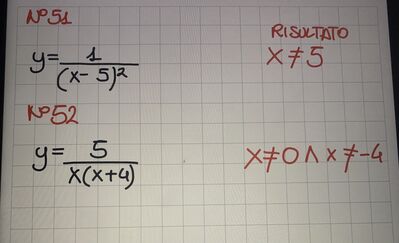 N°51
RISULTATO
y= 1/(x-5)² x≠5
N°52
y= 5/x(x+4) x≠0 ∧ x≠-4